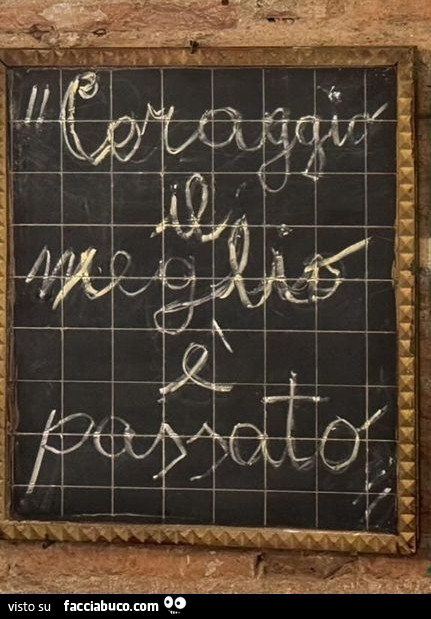 "Coraggio
il
meglio
è
passato"
visto su facciabuco.com